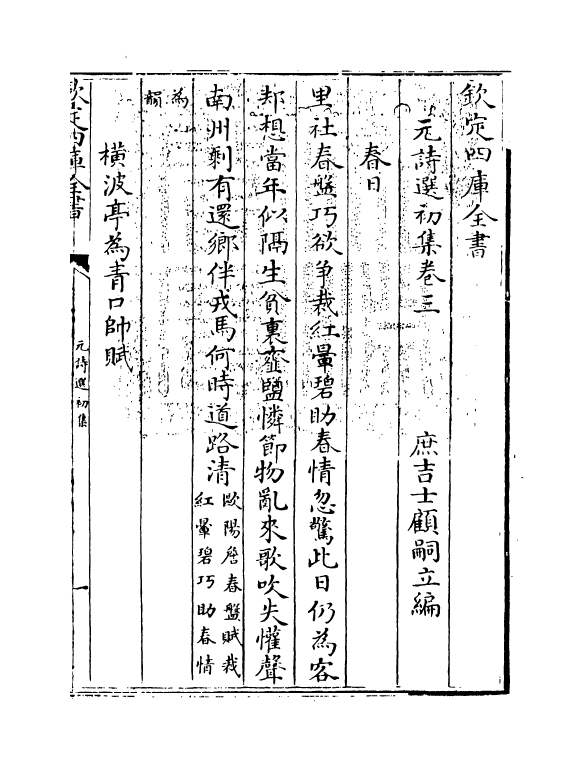 欽定四庫全書
元詩選初集卷三
庶吉士顧嗣立編
春日
里社春盤巧欲争裁紅暈碧助春情忽驚此日仍為客
却想當年似隔生貧裏虀鹽憐節物亂來歌吹失懽聲
南州剩有還鄉伴戎馬何時道路清
歐陽詹春盤賦裁
紅暈碧巧助春情
為
韻
横波亭為青口帥賦
欽定四庫全書
元詩選初集
一